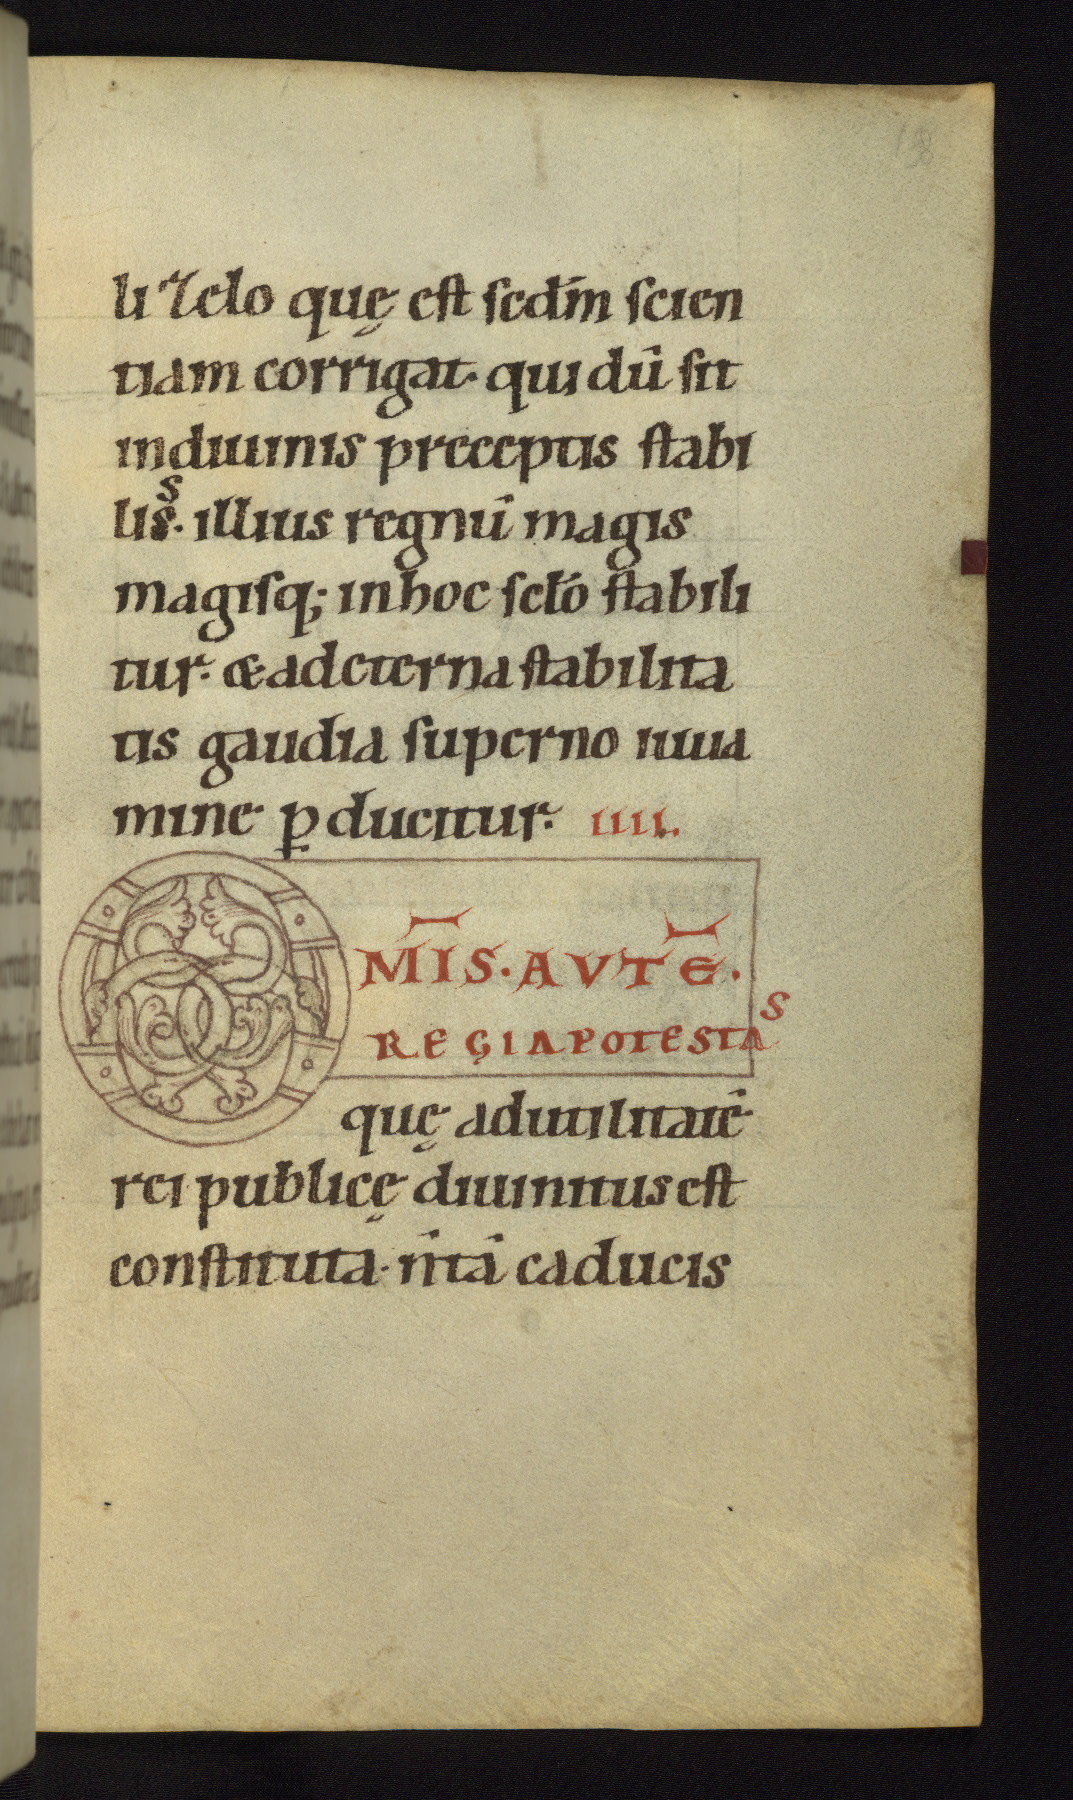 18
li zelo quę est scdm̄ scien
tiam corrigat· qui dū sit
indiuinis preceptis stabi
lis· illius regnū magis
magisq; inhoc scło stabili
tur· & adeterna stabilita
tis gaudia superno iuua
mine ꝑducitur· IIII.
OM̅IS· AVTE̅·
REGIA POTESTAS
quę adutilitatē
rei publicę diuinitus est
constituta· ń tā caducis